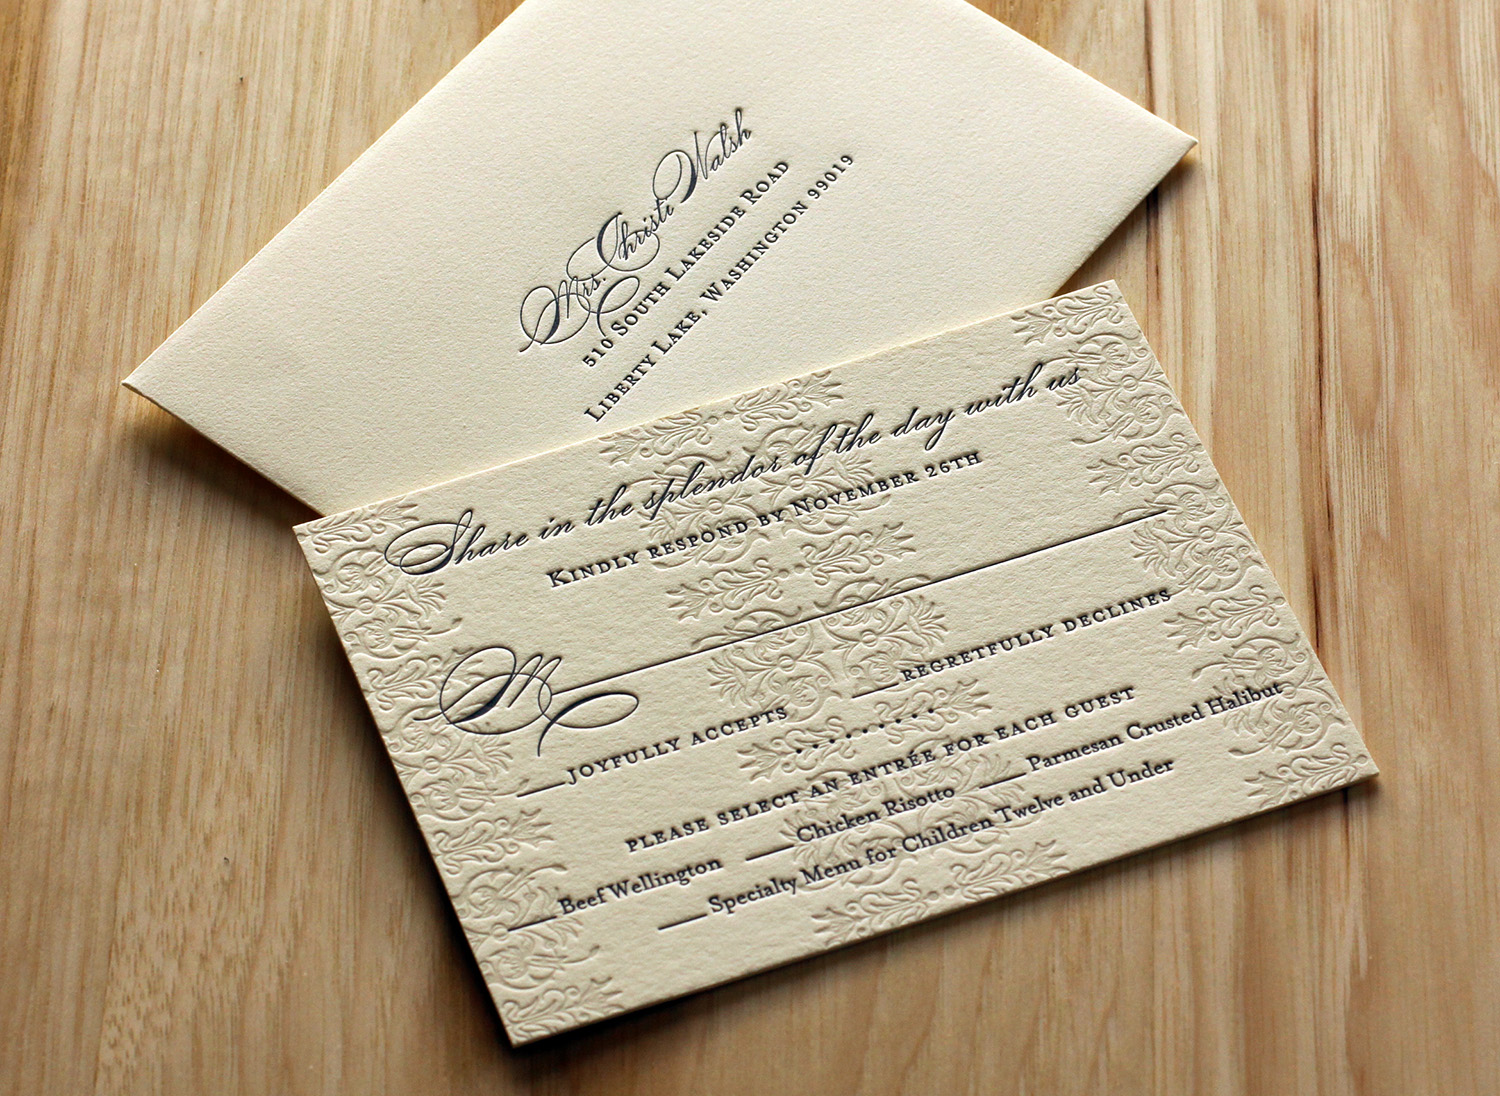 Mrs. Christi Walsh
510 South Lakeside Road
Liberty Lake, Washington 99019
Share in the splendor of the day with us
Kindly respond by November 26th
M
joyfully accepts regretfully declines
please select an entrée for each guest
Beef Wellington Chicken Risotto Parmesan Crusted Halibut
Specialty Menu for Children Twelve and Under